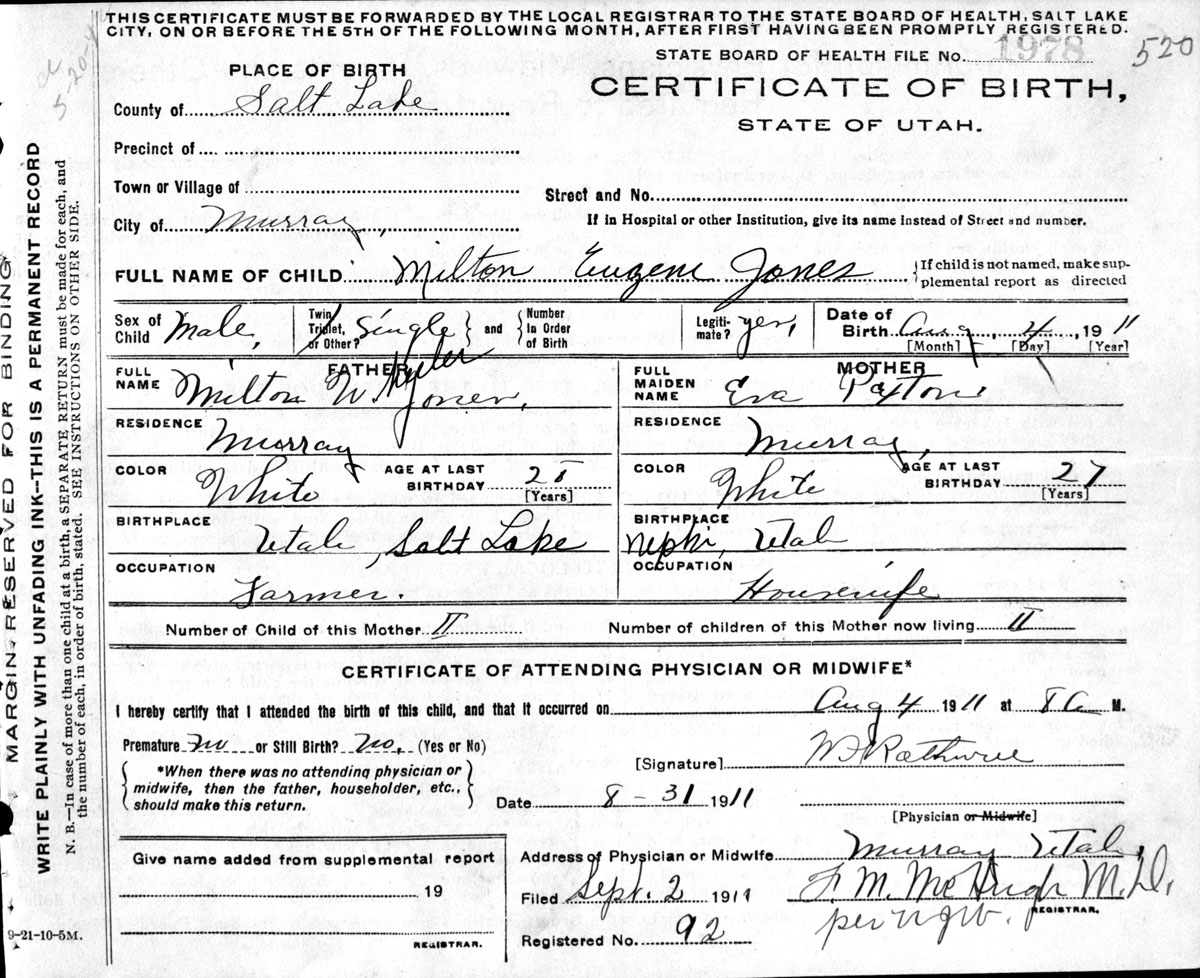 THIS CERTIFICATE MUST BE FORWARDED BY THE LOCAL REGISTRAR TO THE STATE BOARD OF HEALTH, SALT LAKE
CITY, ON OR BEFORE THE 5TH OF THE FOLLOWING MONTH, AFTER FIRST HAVING BEEN PROMPTLY REGISTERED.
STATE BOARD OF HEALTH FILE NO. 1978 520
5-20-
PLACE OF BIRTH
CERTIFICATE OF BIRTH,
STATE OF UTAH.
County of Salt Lake
Precinct of
Town or Village of
Street and No.
City of Murray,
If in Hospital or other Institution, give its name instead of Street and number.
FULL NAME OF CHILD Milton Eugene Jones
{If child is not named, make sup-
plemental report as directed
Sex of Child Male,
Twin Triplet, or Other? Single } and { Number In Order of Birth
Legiti-mate? yes,
Date of Birth Aug 4 1911
[Month] [Day] [Year]
FATHER
FULL NAME Milton W. Jones,
MOTHER
FULL MAIDEN NAME Eva Paxton
RESIDENCE Murray
RESIDENCE Murray,
COLOR White
AGE AT LAST BIRTHDAY 25 [Years]
COLOR White
AGE AT LAST BIRTHDAY 27 [Years]
BIRTHPLACE Utah, Salt Lake
BIRTHPLACE Nephi, Utah
OCCUPATION Farmer.
OCCUPATION Housewife
Number of Child of this Mother II
Number of children of this Mother now living II
CERTIFICATE OF ATTENDING PHYSICIAN OR MIDWIFE*
I hereby certify that I attended the birth of this child, and that it occurred on Aug 4 1911 at 8 a M.
Premature no or Still Birth? No, (Yes or No)
[Signature]
{ *When there was no attending physician or
midwife, then the father, householder, etc.,
should make this return. }
Date 8-31 1911
[Physician or Midwife]
Give name added from supplemental report
19
REGISTRAR.
Address of Physician or Midwife Murray Utah,
Filed Sept. 2 1911 F. M. McHugh M.D.
REGISTRAR.
per
Registered No. 92
9-21-10-5M.
MARGIN RESERVED FOR BINDING
WRITE PLAINLY WITH UNFADING INK--THIS IS A PERMANENT RECORD
N. B.—In case of more than one child at a birth, a SEPARATE RETURN must be made for each, and
the number of each, in order of birth, stated. SEE INSTRUCTIONS ON OTHER SIDE.